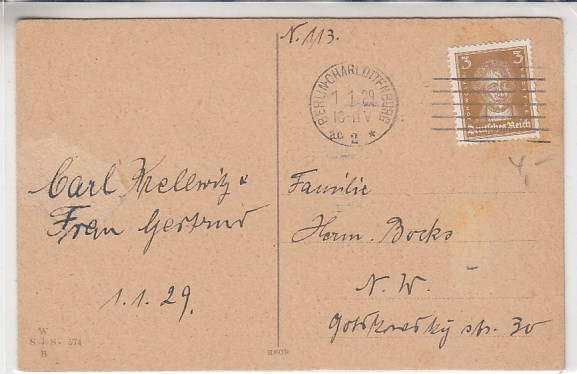 N. 113.
BERLIN-CHARLOTTENBURG
1.1.29
10-11 V
* 2 *
3 3
Deutsches Reich
4,-
Carl Krellwitz &
Frau Gertrud
1.1.29.
Familie
Herm. Bocks
N. W.
Gotzkowsky str. 30
W
S+S- 574
B